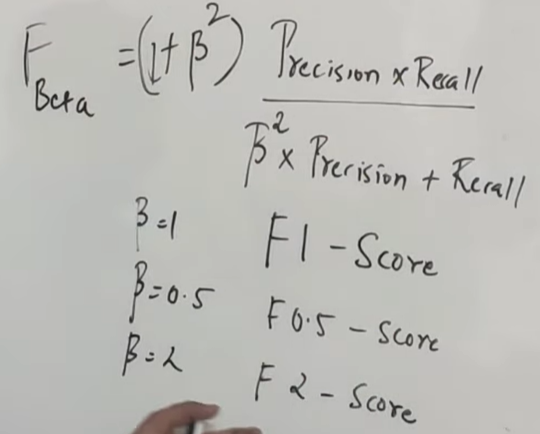 F Beta = (1 + β²) Precision x Recall
β² x Precision + Recall
β=1 F1 - Score
β=0.5 F0.5 - Score
β=2 F2 - Score